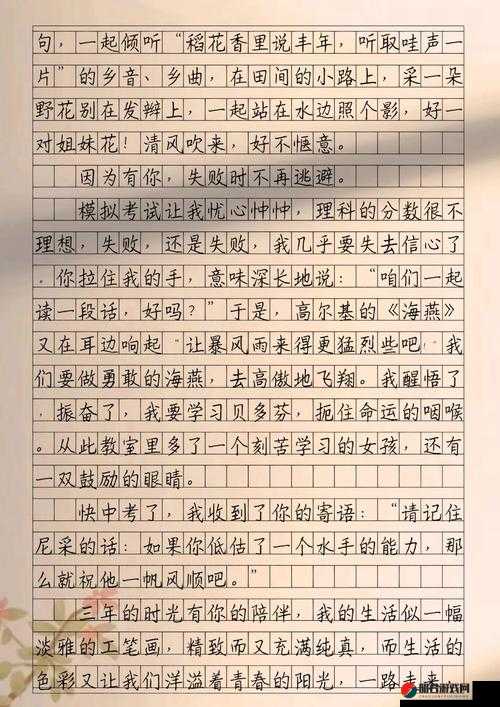 句，一起倾听“稻花香里说丰年，听取哇声一
片”的乡音、乡曲，在田间的小路上，采一朵
野花别在发辫上，一起站在水边照个影，好一
对姐妹花！清风吹来，好不惬意。
因为有你，失败时不再逃避。
模拟考试让我忧心忡忡，理科的分数很不
理想，失败，还是失败，我几乎要失去信心了
。你拉住我的手，意味深长地说：“咱们一起
读一段话，好吗？”于是，高尔基的《海燕》
又在耳边响起“让暴风雨来得更猛烈些吧”我
们要做勇敢的海燕，去高傲地飞翔。我醒悟了
，振奋了，我要学习贝多芬，扼住命运的咽喉
。从此教室里多了一个刻苦学习的女孩，还有
一双鼓励的眼睛。
快中考了，我收到了你的寄语：“请记住
尼采的话：如果你低估了一个水手的能力，那
么就祝他一帆风顺吧。”
三年的时光有你的陪伴，我的生活似一幅
淡雅的工笔画，精致而又充满纯真，而生活的
色彩又让我们洋溢着青春的阳光，一路走来，